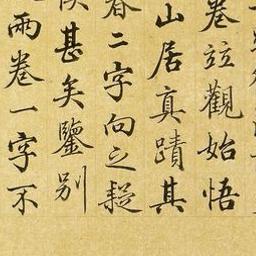 卷竝觀始悟
山居真蹟其
春二字向之疑
甚矣鑒別
兩卷一字不